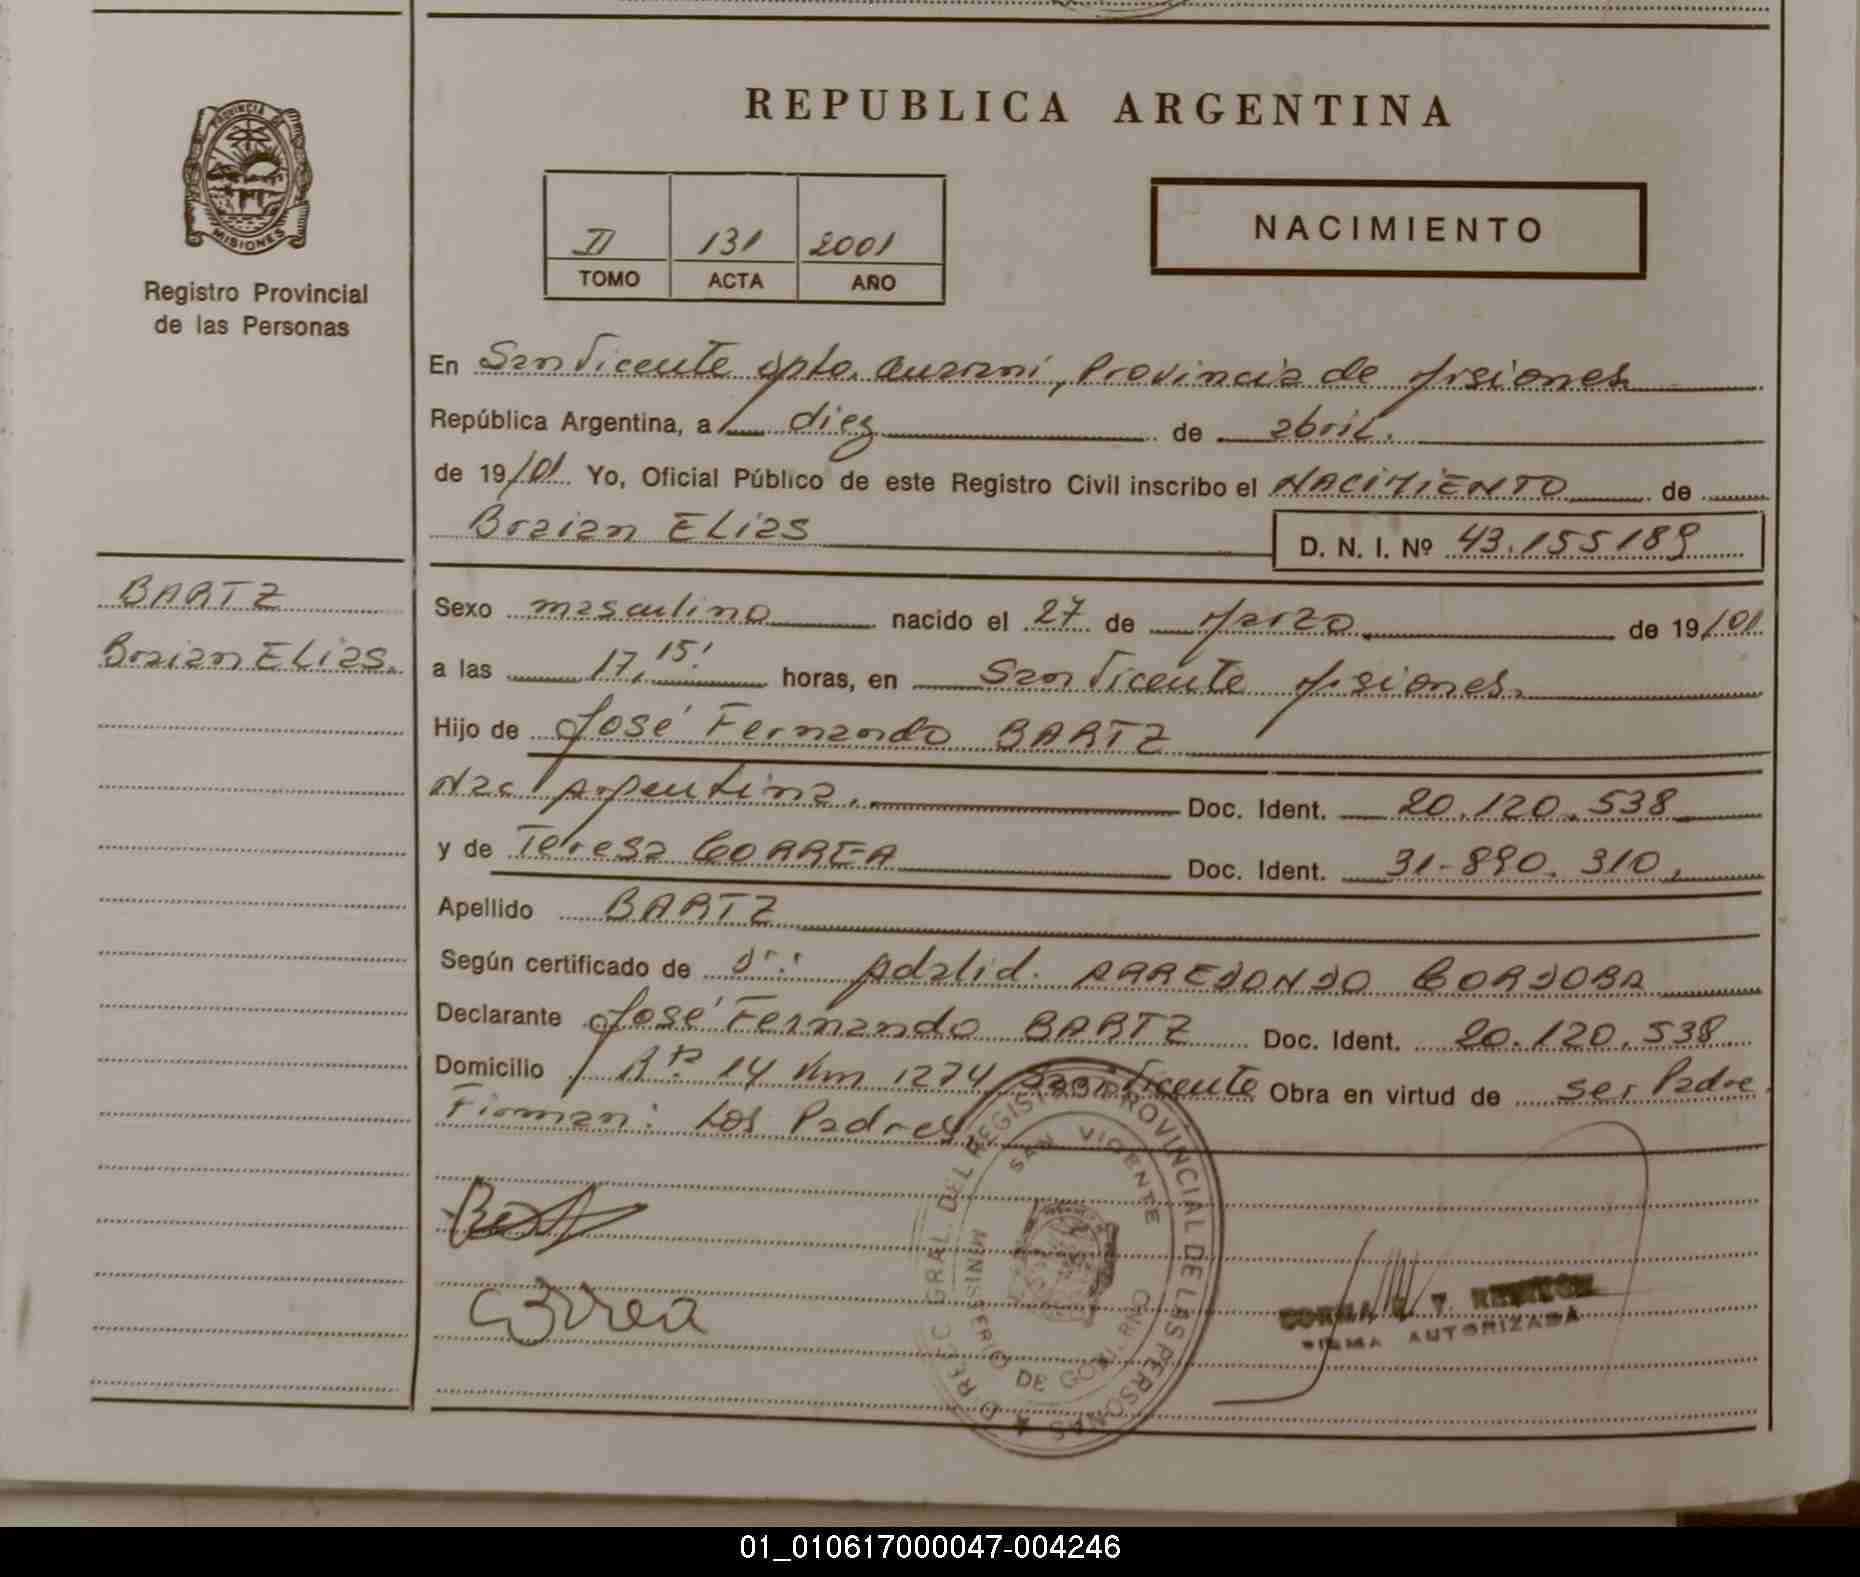 REPUBLICA ARGENTINA
PROVINCIA DE
MISIONES
Registro Provincial
de las Personas
II 131 2001
TOMO ACTA AÑO
NACIMIENTO
En San Vicente dpto. Guaraní, Provincia de Misiones
República Argentina, a diez de abril.
de 19/01. Yo, Oficial Público de este Registro Civil inscribo el NACIMIENTO de
Braian ELias
D. N. I. Nº 43.155189
BARTZ
Braian ELias.
Sexo masculino nacido el 27 de Marzo de 19/01
a las 17,15' horas, en San Vicente Misiones.
Hijo de José Fernando BARTZ
Nac Argentina. Doc. Ident. 20.120.538
y de Teresa CORREA Doc. Ident. 31-890.310,
Apellido BARTZ
Según certificado de Dr: Adalid. ARREDONDO CORDOBA
Declarante José Fernando BARTZ Doc. Ident. 20.120.538
Domicilio Rta 14 Km 1274 San Vicente Obra en virtud de ser Padre.
Firman: Los Padres.
Correa
DIRECC GRAL. DEL REGISTRO PROVINCIAL DE LAS PERSONAS
SAN VICENTE
MINISTERIO DE GOBIERNO
FIRMA AUTORIZADA
01_010617000047-004246